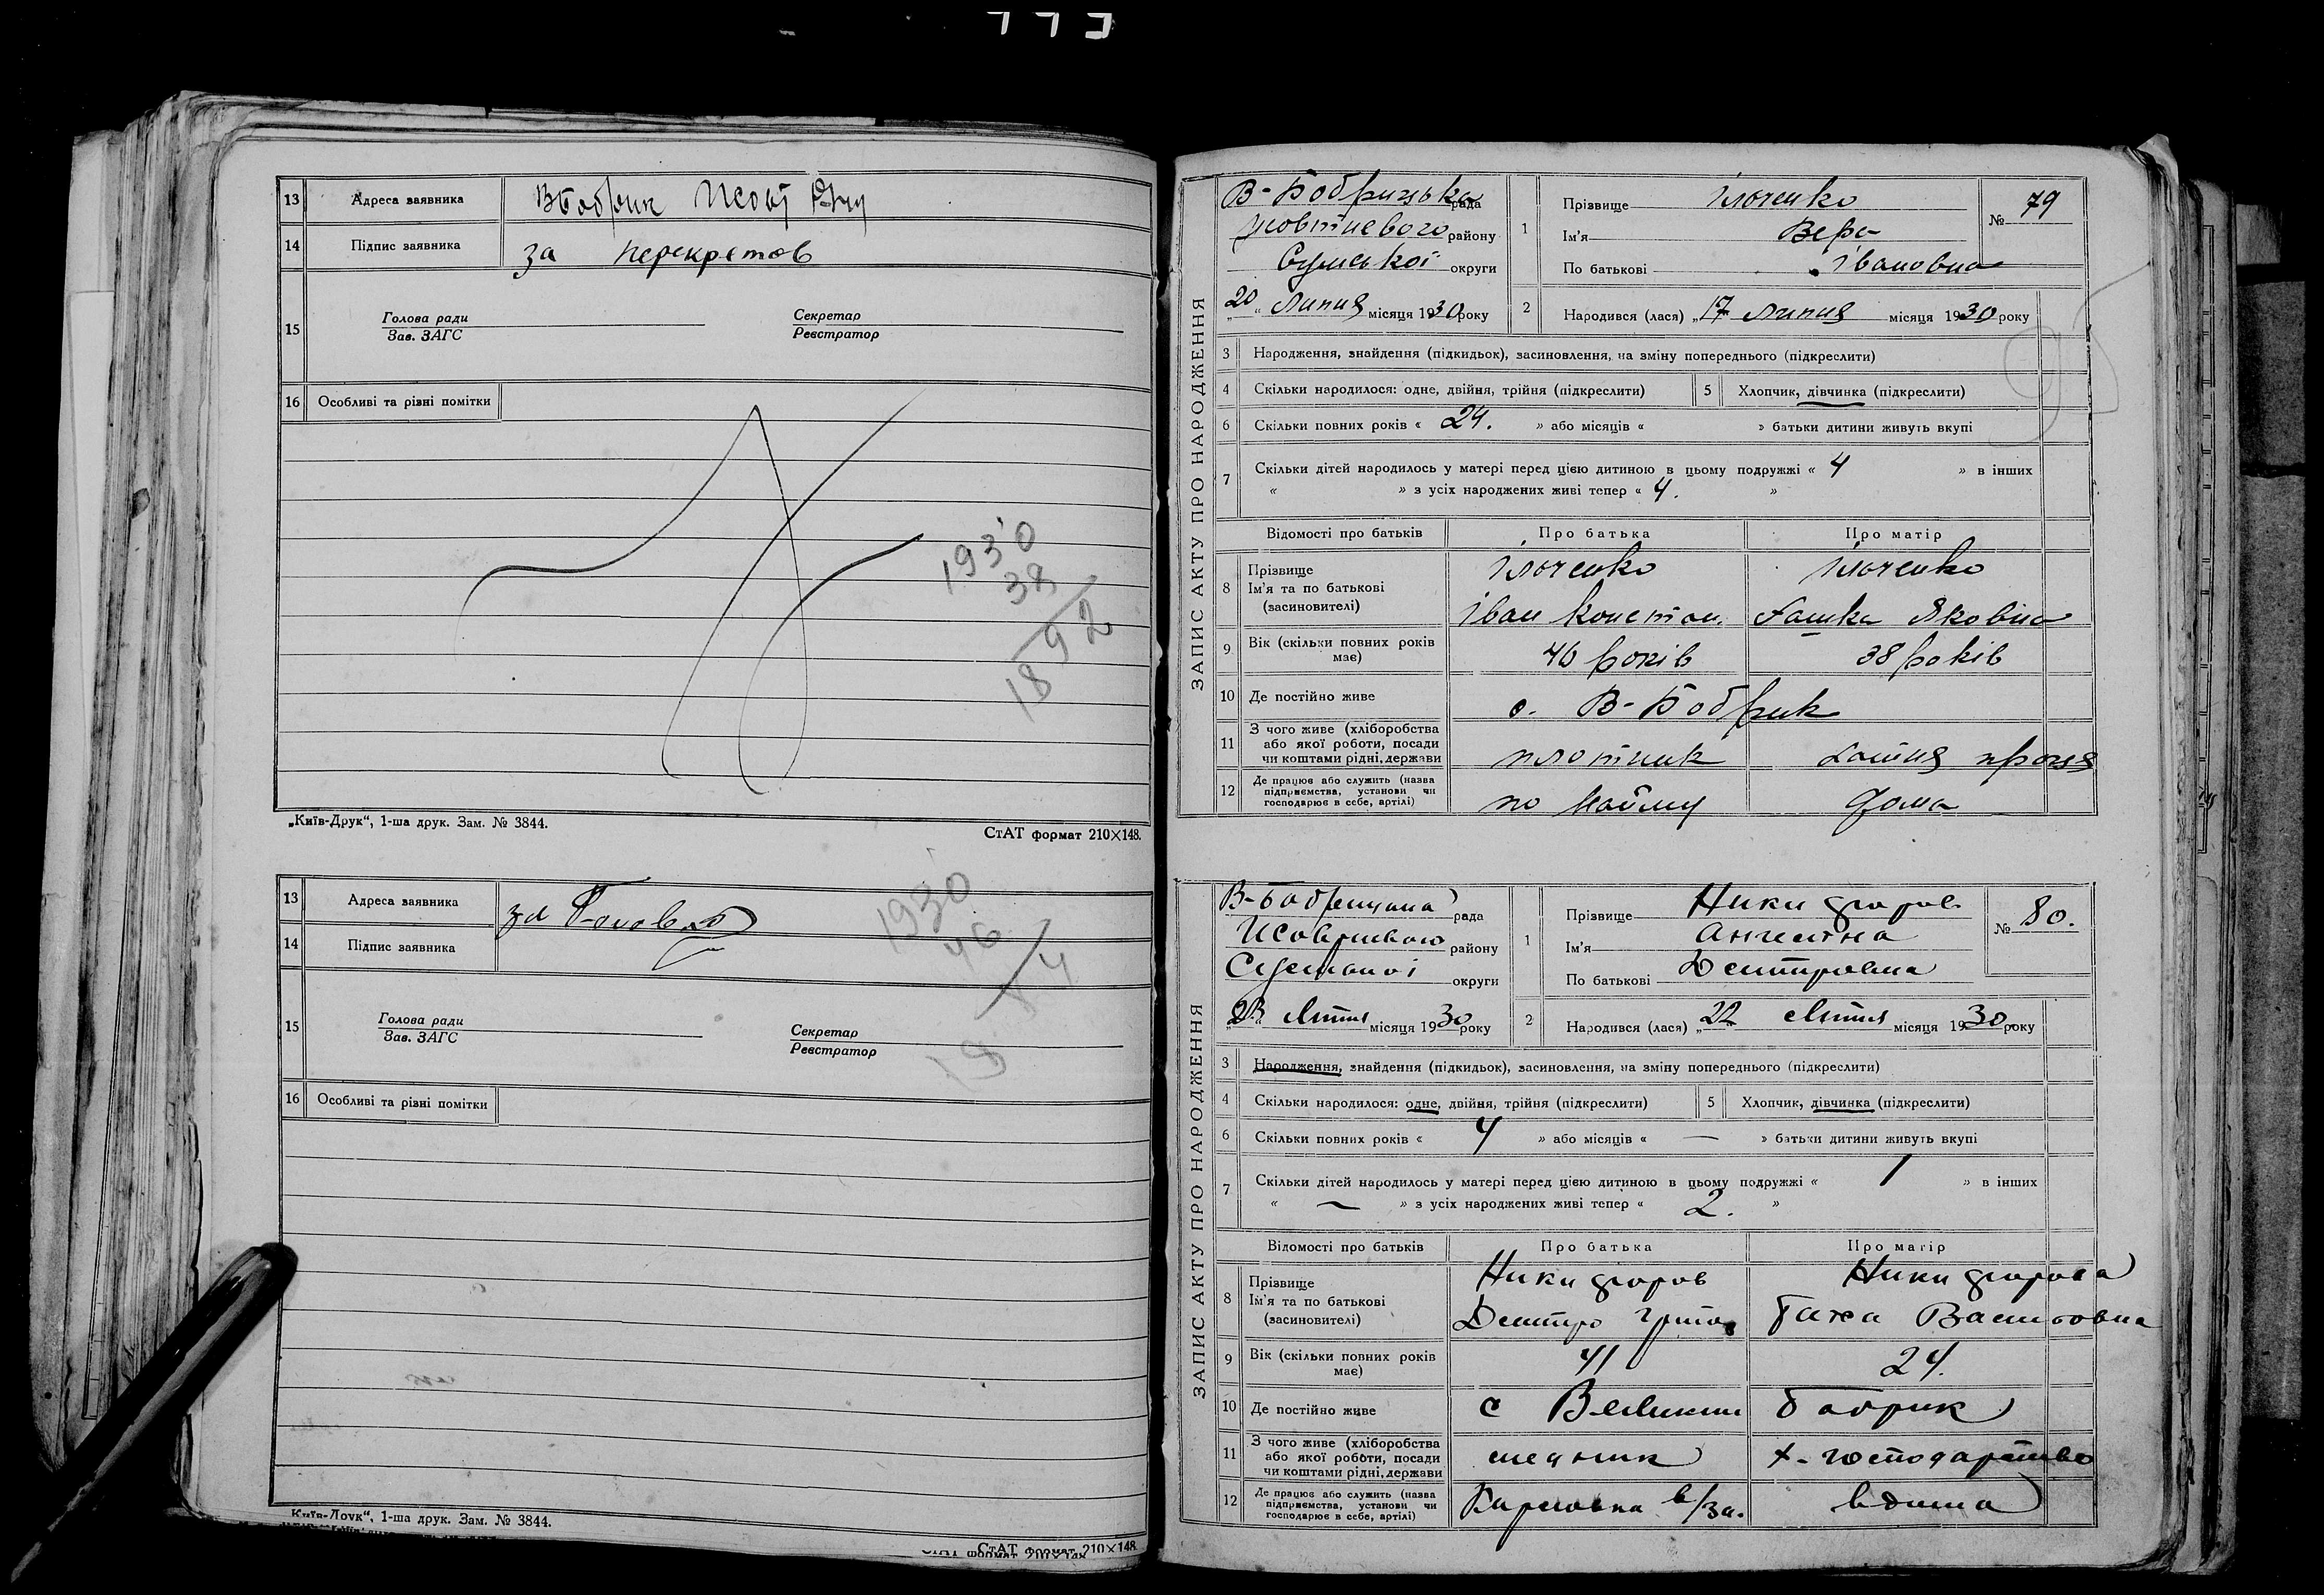 13 Адреса заявника
14 Підпис заявника за перекретов
15 Голова ради Зав. ЗАГС Секретар Реєстратор
16 Особливі та різні помітки
1930
38
1892
„Київ-Друк“, 1-ша друк. Зам. № 3844. СтАТ формат 210×148.
13 Адреса заявника за
14 Підпис заявника
1930
46
15 Голова ради Зав. ЗАГС Секретар Реєстратор
16 Особливі та різні помітки
Київ-Друк“, 1-ша друк. Зам. № 3844.
СтАТ формат 210×148.
ЗАПИС АКТУ ПРО НАРОДЖЕННЯ
В-Бобрицька рада
Жовтневого району
Сумської округи
„20“ Липня місяця 1930 року
1 Прізвище Ілюченко
Ім'я Вера
По батькові Івановна
№ 79
2 Народився (лася) „17 Липня місяця 1930 року
3 Народження, знайдення (підкидьок), засиновлення, на зміну попереднього (підкреслити)
4 Скільки народилося: одне, двійня, трійня (підкреслити) 5 Хлопчик, дівчинка (підкреслити)
6 Скільки повних років « 24. » або місяців « » батьки дитини живуть вкупі
7 Скільки дітей народилось у матері перед цією дитиною в цьому подружжі « 4 » в інших
« » з усіх народжених живі тепер « 4. »
Відомості про батьків Про батька Про матір
8 Прізвище Ілюченко Ілюченко
Ім'я та по батькові
(засновителі) Іван Констан. Яковна
9 Вік (скільки повних років має) 40 років 38 років
10 Де постійно живе с. В-Бобрик
11 З чого живе (хліборобства або якої роботи, посади чи коштами рідні, держави плотник домня праця
12 Де працює або служить (назва підприємства, установи чи господарює в себе, артілі) по найму дома
ЗАПИС АКТУ ПРО НАРОДЖЕННЯ
В-Бобрицька рада
району
округи
„23“ Липня місяця 1930 року
1 Прізвище Никифоров
Ім'я Ангелина
По батькові Дмитровна
№ 80.
2 Народився (лася) „22 Липня місяця 1930 року
3 Народження, знайдення (підкидьок), засиновлення, на зміну попереднього (підкреслити)
4 Скільки народилося: одне, двійня, трійня (підкреслити) 5 Хлопчик, дівчинка (підкреслити)
6 Скільки повних років « 4 » або місяців « — » батьки дитини живуть вкупі
7 Скільки дітей народилось у матері перед цією дитиною в цьому подружжі « 1 » в інших
« — » з усіх народжених живі тепер « 2. »
Відомості про батьків Про батька Про матір
8 Прізвище Никифоров Никифорова
Ім'я та по батькові
(засновителі) Дмитро Василовна
9 Вік (скільки повних років має) 41 24.
10 Де постійно живе с Великий Бобрик
11 З чого живе (хліборобства або якої роботи, посади чи коштами рідні, держави х-господарство
12 Де працює або служить (назва підприємства, установи чи господарює в себе, артілі) вдома